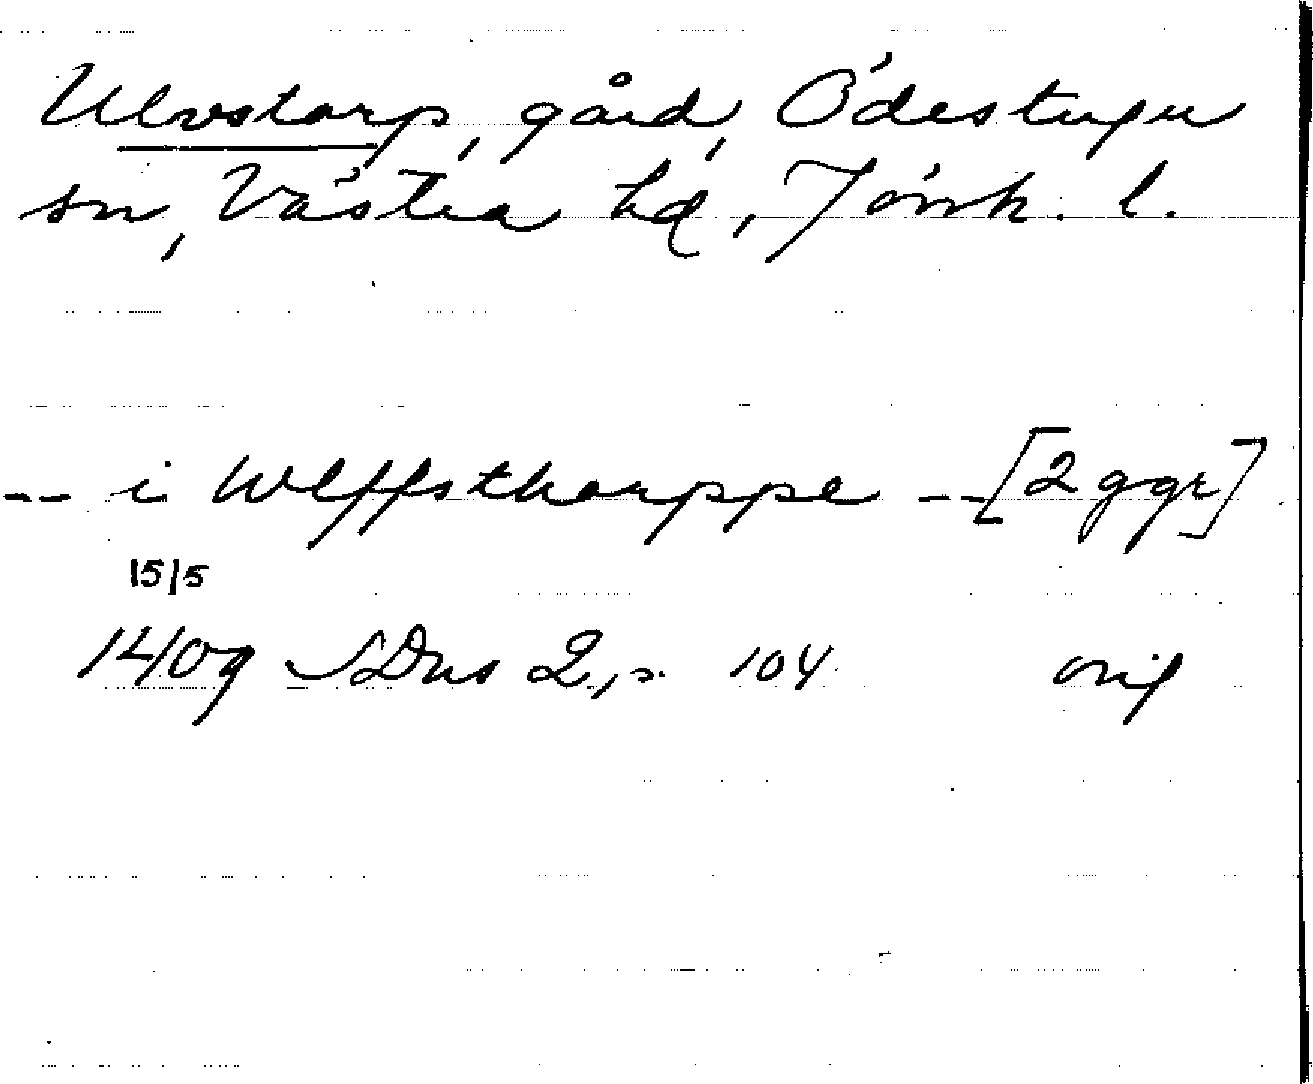 Ulvstorp, gård, Ödestugu
sn, Västra hd, Jönk. l.
-- i Wlffsthorppe -- [2 ggr]
15/5
1409 SDns 2, s. 104 orig